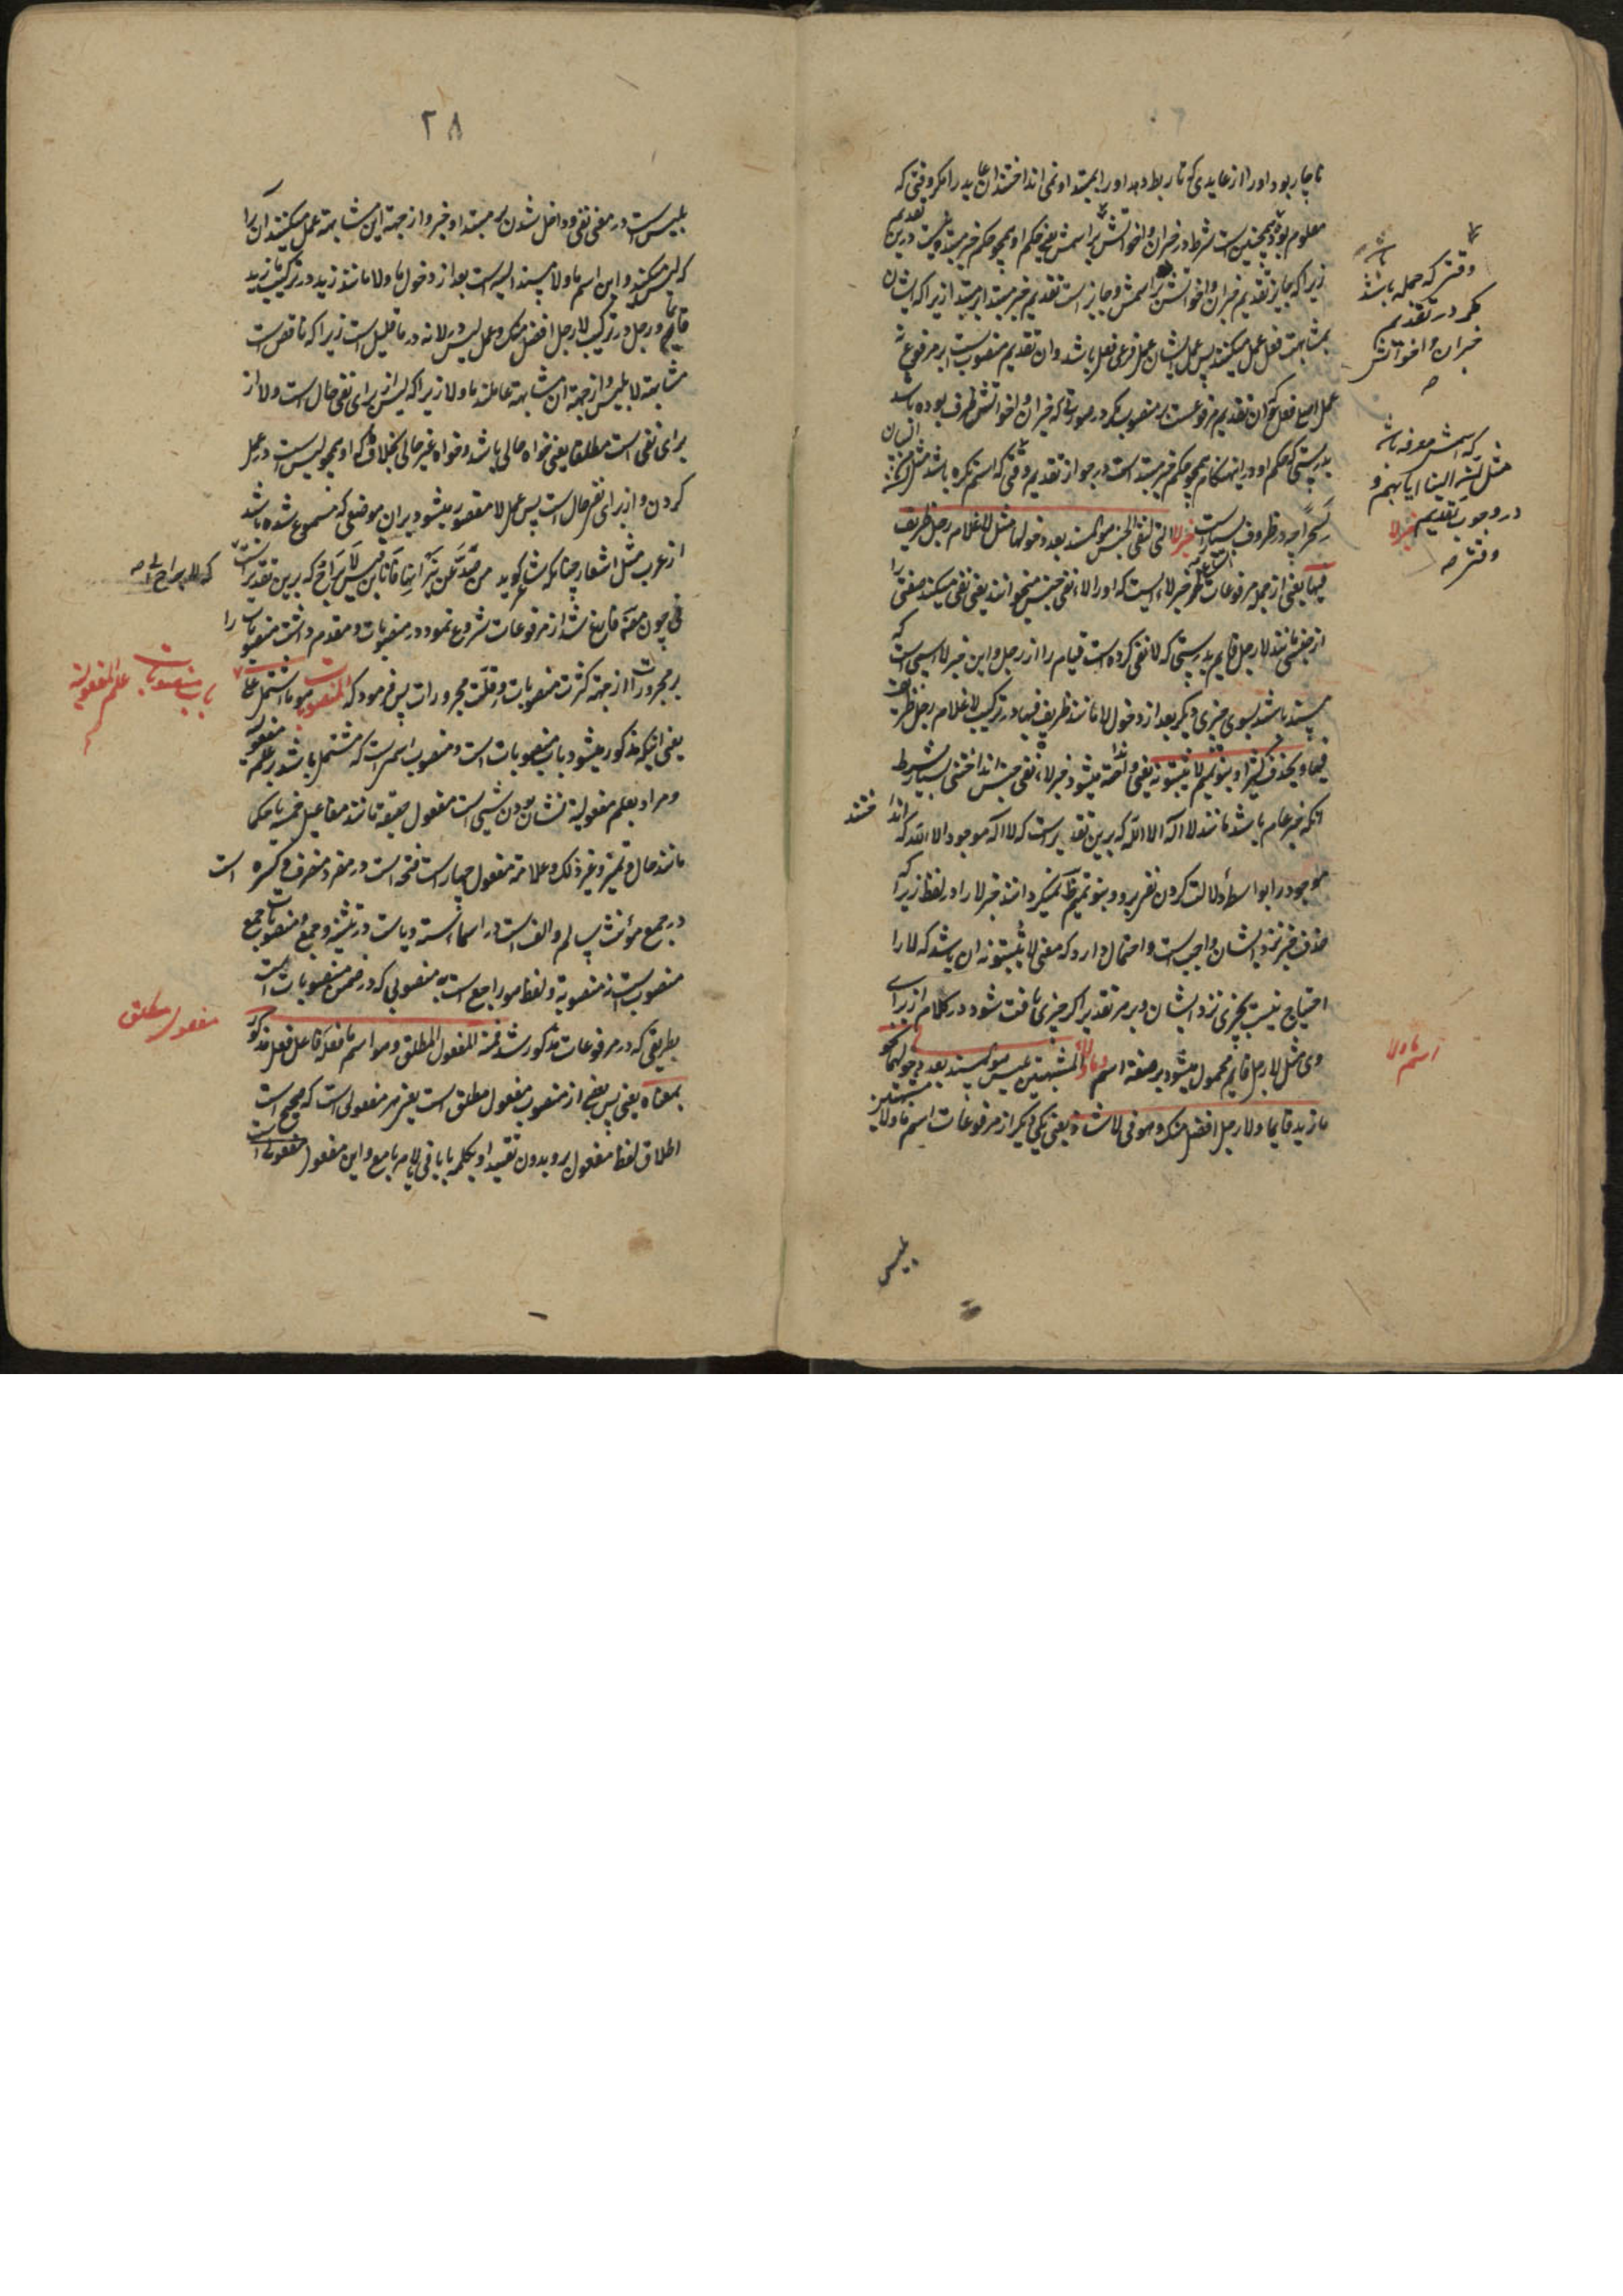 ناچار بود اورا از عایدی که تا ربط دهد اورا بمبتدا و نمی انداختند ان عاید را مکر وقتی که
معلوم بود و همچنین است شرط در خبر ان و اخواتش بر اسمش یعنی حکم او همچو حکم خبر مبتداست درین تقدیم
زیرا که جایز تقدیم خبر ان و اخواتش بر اسمش و جایز است تقدیم خبر مبتدا بر مبتدا زیرا که ایشان
بمشابهت فعل عمل میکنند پس عمل ایشان عمل فرعی فعل باشد و ان تقدیم منصوبست بر مرفوع نه
عمل اصلی فعل که ان تقدیم مرفوعست بر منصوب مکر در صورتی که خبر ان و اخواتش ظرف بوده باشد
بدرستی که حکم او در این هنکام همچو حکم خبر مبتدا است در جواز تقدیم وقتی که اسم نکره باشد مثل ان من البیان
لسحرا چه در ظروف بسیار است خبر لا التی لنفی الجنس هو المسند بعد دخولها مثل لا غلام رجل ظریف
فیها یعنی از جمله مرفوعات خبر لا ایست که اورا لاء نفی جنس میخوانند یعنی نفی میکند صفتی را
از جنسی مانند لا رجل قایم بدرستی که لا نفی کرده است قیام را از رجل و این خبر لا اسمی است که
مسند باشد بسوی چیزی دیکر بعد از دخول لا مانند ظریف فیها در ترکیب لا غلام رجل ظریف
فیها و یحذف کثیرا و بنو تمیم لا یثبتونه یعنی و انداخته میشود خبر لاء نفی جنس انداختنی بسیار بشرط
انکه خبر عام باشد مانند لا اله الا الله که برین تقدیر است که لا اله موجود الا الله که انداختند
موجود را بواسطه دلالت کردن نفی برو و بنو تمیم ظاهر نمیکردانند خبر لا را در لفظ زیرا که
حذف خبر نزد ایشان واجب است و احتمال دارد که معنی لا یثبتونه ان باشد که لا را
احتیاج نیست بخبری نزد ایشان و بر هر تقدیر اکر چیزی یافت شود در کلام از برای
وی مثل لا رجل قایم محمول میشود بر صفة اسم ما و لا المشبهتین بلیس هو المسند الیه بعد دخولهما نحو
ما زید قایما و لا رجل افضل منک و هو فی لا شاذ یعنی یکی دیکر از مرفوعات اسم ما و لا مشبهتین
بلیس
وقتی که جمله باشد
مکر در تقدیم
خبر ان و اخواتش
که اسمش معرفه باشد
مثل ان الینا ایابهم و
در وجوب تقدیم
خبر لا
اسم ما و لا
٢٨
بلیس است در معنی نفی و داخل شدن بر مبتدا و خبر و از جهة این مشابهة عمل میکنند ان را
که لیس میکند و این اسم ما و لا مسند الیه است بعد از دخول ما و لا مانند زید در ترکیب ما زید
قایما و رجل در ترکیب لا رجل افضل منک و عمل لیس در لا نه در ما قلیل است زیرا که ناقص است
مشابهة لا بلیس و از جهة ان مشابهة عاملند ما و لا زیرا که لیس از برای نفی حال است و لا از
برای نفی است مطلقا یعنی خواه حالی باشد و خواه غیر حالی بخلاف ما که او همچو لیس است در عمل
کردن و از برای نفی حال است پس عمل لا مقصور میشود بران موضعی که مسموع شده باشد
از عرب مثل اشعار چنانکه شاعر کوید من صد عن نیرانها فانا ابن قیس لا براح که برین تقدیر است
که لا براح لی
نی چون مص فارغ شد از مرفوعات شروع نمود در منصوبات و مقدم داشت منصوبات را
بر مجرورات از جهة کثرت منصوبات و قلت مجرورات پس فرمود که المنصوبات هو ما اشتمل علی
علم المفعولیة
باب منصوبات
یعنی اینکه مذکور میشود باب منصوبات است و منصوب اسمی است که مشتمل باشد بر علم مفعولیه
و مراد بعلم مفعولیة نشان بودن شیی است مفعول حقیقة مانند مفاعیل خمسه یا حکما
مانند حال و تمییز و غیر ذلک و علامة مفعول چهار است فتحه است در مفرد منصرف و کسره است
در جمع مؤنث سالم و الف است در اسماء سته و یاست در تثنیه و جمع و منصوبات جمع
منصوب است نه منصوبة و لفظ هو راجع است به منصوبی که در ضمن منصوبات است
بطریقی که در مرفوعات مذکور شد فمنه المفعول المطلق و هو اسم ما فعله فاعل فعل مذکور
مفعول مطلق
بمعناه یعنی پس بعضی از منصوب مفعول مطلق است یعنی هر مفعولی است که صحیح است
اطلاق لفظ مفعول برو بدون تقیید او بکلمه با یا فی یا لام یا مع و این مفعول